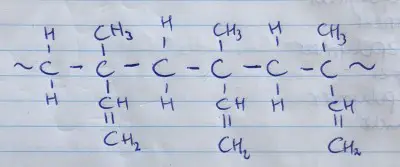 H CH₃ H CH₃ H CH₃
~ C - C - C - C - C - C ~
H CH H CH H CH
CH₂ CH₂ CH₂